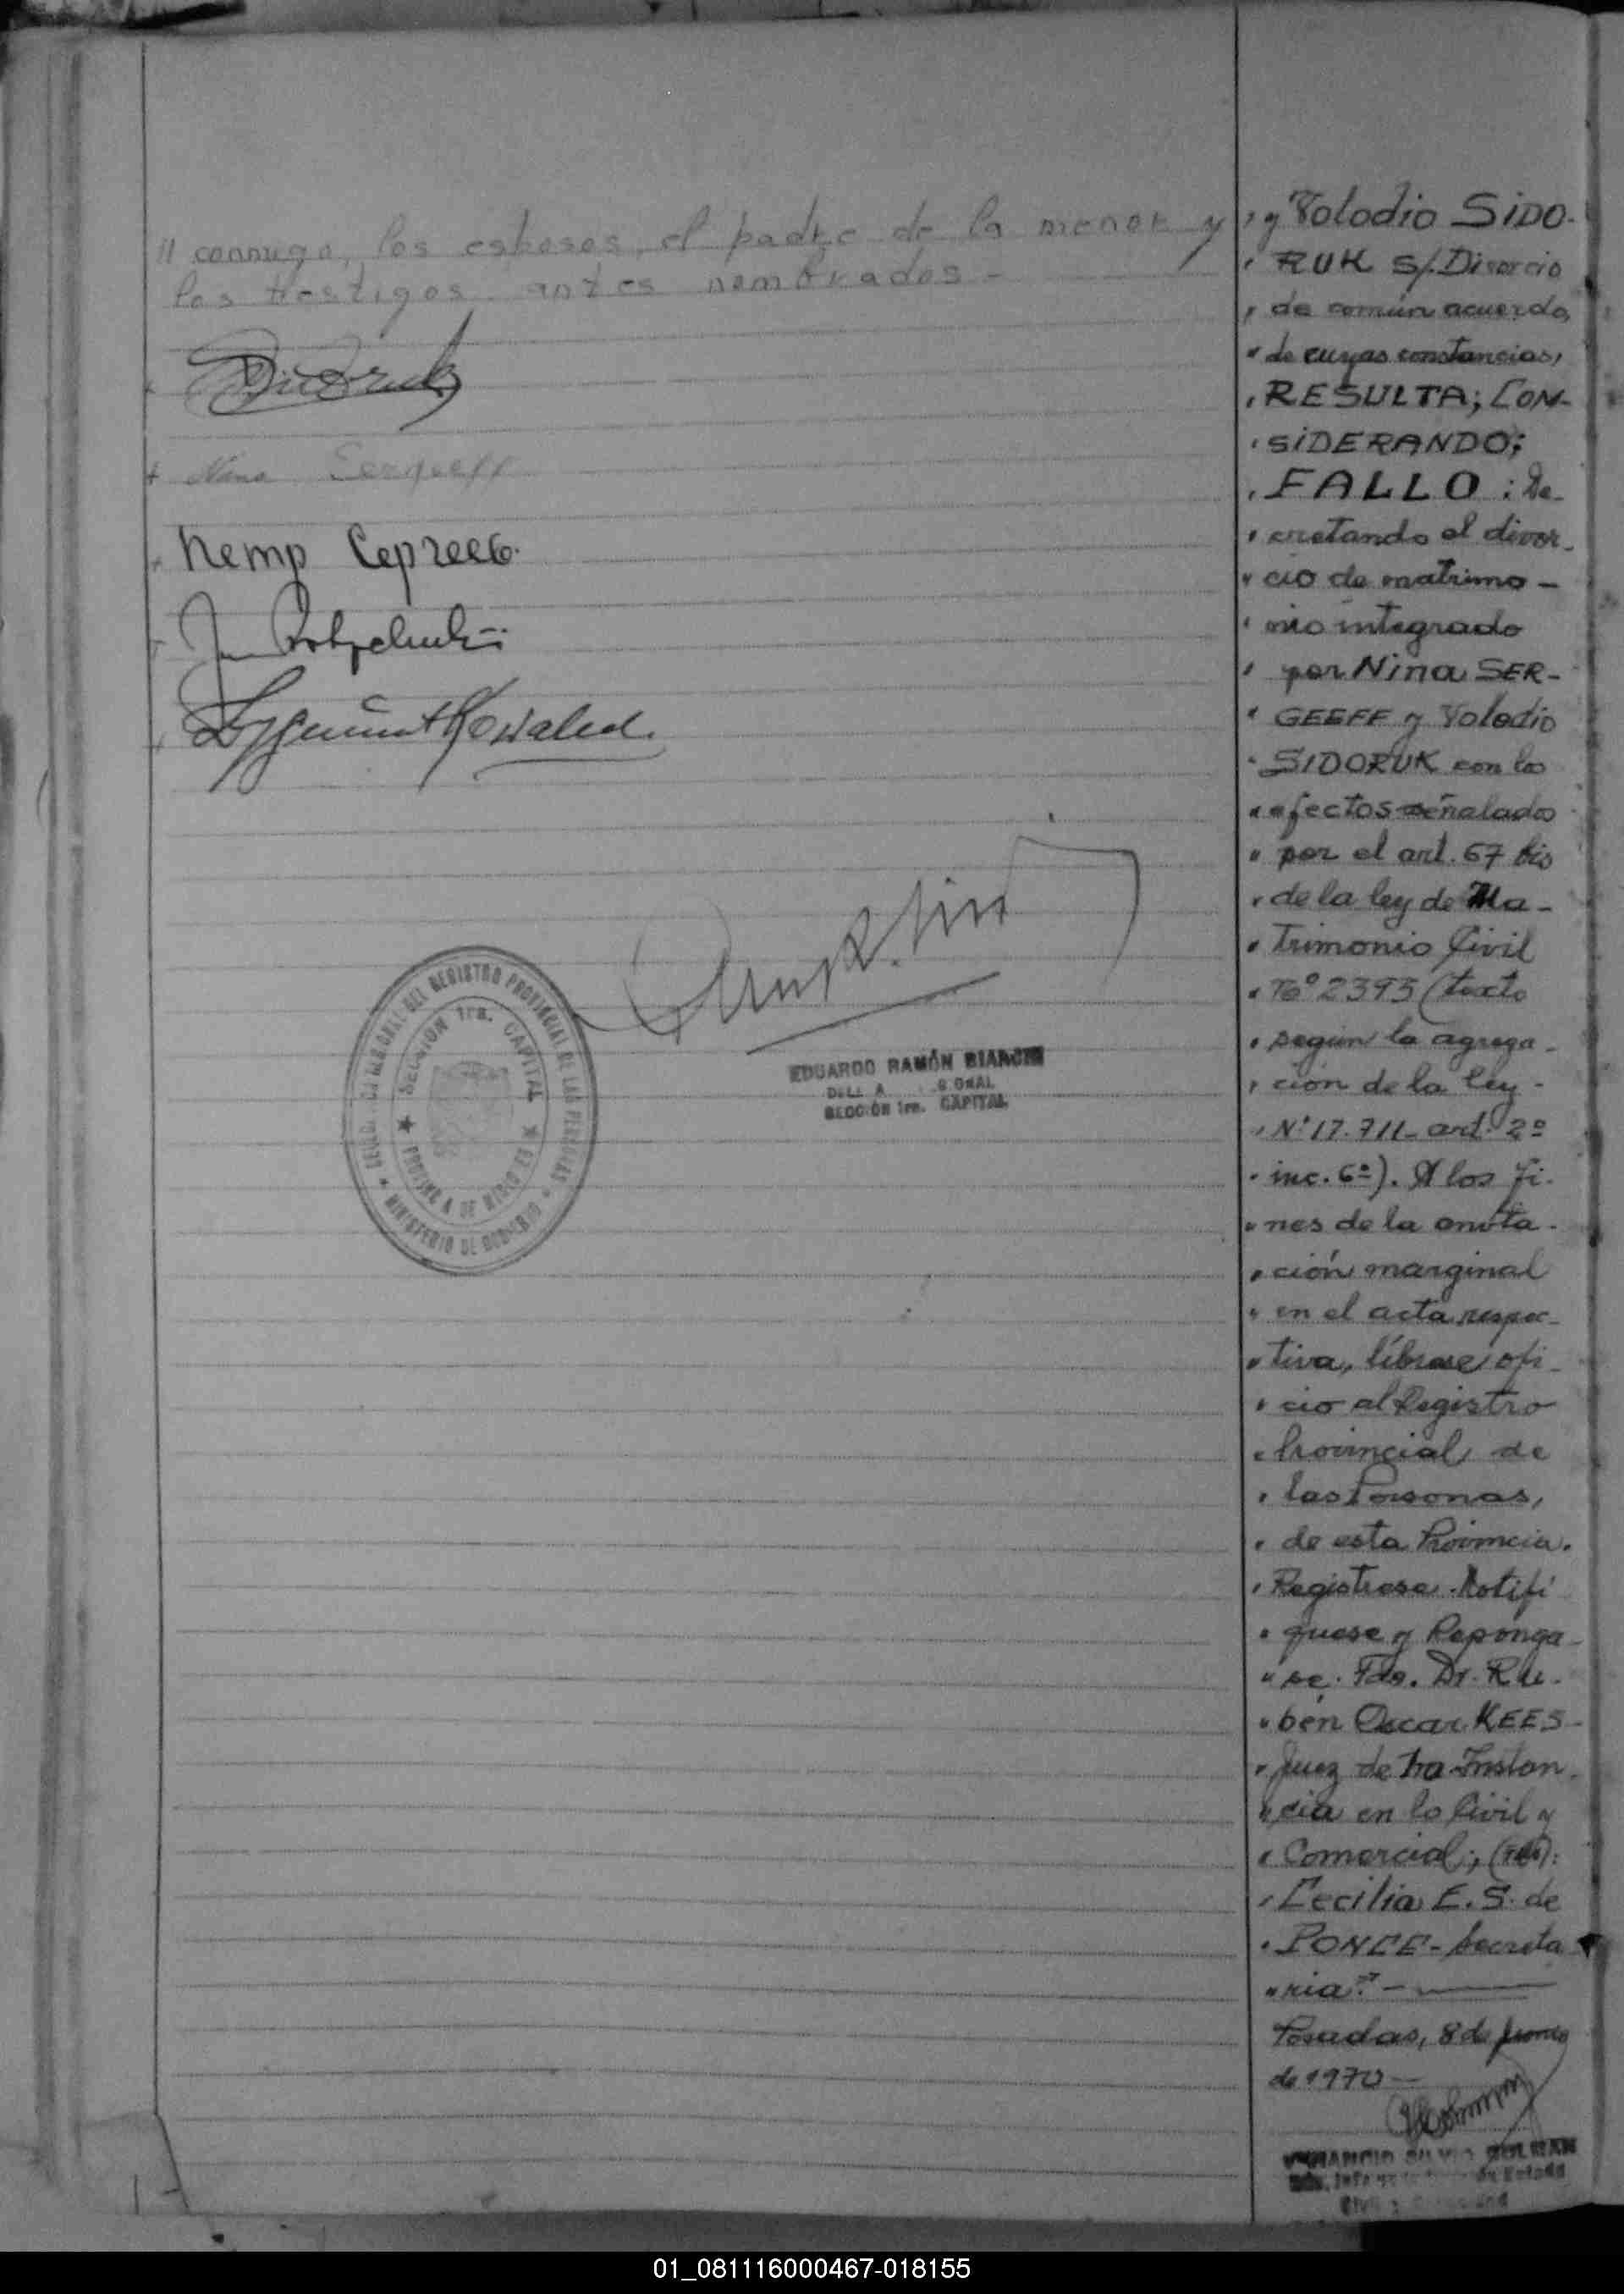 // conmigo, los esposos, el padre de la menor y
los testigos antes nombrados -
Sidoruk
Nina Sergeeff
EDUARDO RAMÓN BIANCHI
SECCIÓN 1ra. CAPITAL
SECCIÓN 1ra. CAPITAL
DEL REGISTRO PROVINCIAL DE LAS PERSONAS
MINISTERIO DE GOBIERNO
" y Volodio SIDO-
" RUK S/. Divorcio
" de común acuerdo,
" de cuyas constancias,
" RESULTA; CON-
" SIDERANDO;
" FALLO: De-
" cretando el divor-
" cio de matrimo-
" nio integrado
" por Nina SER-
" GEEFF y Volodio
" SIDORUK con los
" efectos señalados
" por el art. 67 bis
" de la ley de Ma-
" trimonio Civil
" Nº 2393 (texto
" según la agrega-
" ción de la ley -
" Nº 17.711 - art. 2º
" inc. 6º). A los fi-
" nes de la anota-
" ción marginal
" en el acta respec-
" tiva, líbrese ofi-
" cio al Registro
" Provincial de
" las Personas,
" de esta Provincia.
" Registrese. Notifi
" quese y Reponga-
" se. Fdo. Dr. Ru-
" bén Oscar KEES-
" Juez de 1ra Instan-
" cia en lo Civil y
" Comercial; (Fdo):
" Cecilia E. S. de
" PONCE - Secreta
" ria". -
Posadas, 8 de Junio
de 1970 -
01_081116000467-018155